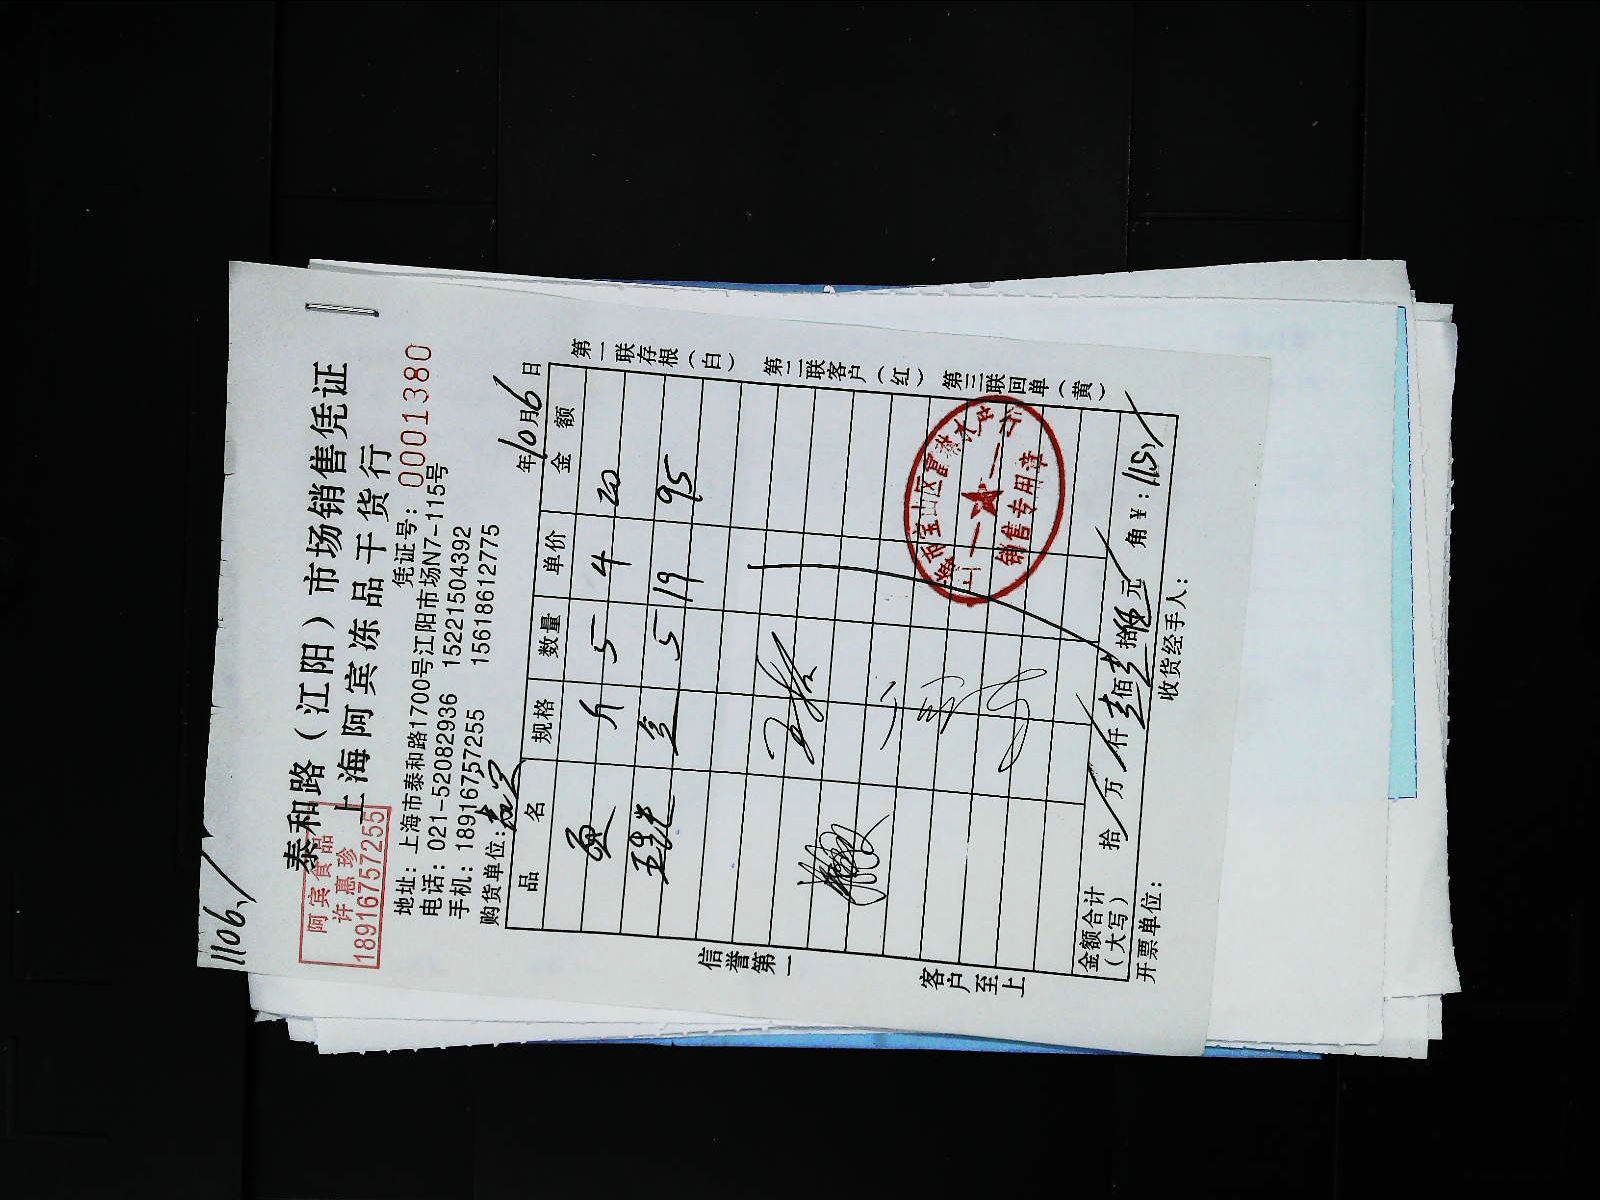 1106
泰和路（江阳）市场销售凭证
上海阿宾冻品干货行
阿宾食品
许惠珍
18916757255
凭证号：0001380
地址：上海市泰和路1700号江阳市场N7-115号
电话：021-52082936 15221504392
手机：18916757255 15618612775
购货单位： 年10月6日
品名 规格 数量 单价 金额
斤 5 4 20
5 19 95
第一联存根（白）
第二联客户（红）
第三联回单（黄）
信誉第一
客户至上
销售专用章
金额合计（大写） 拾 万 仟 壹佰壹拾伍元 角 ￥：115
开票单位： 收货经手人：